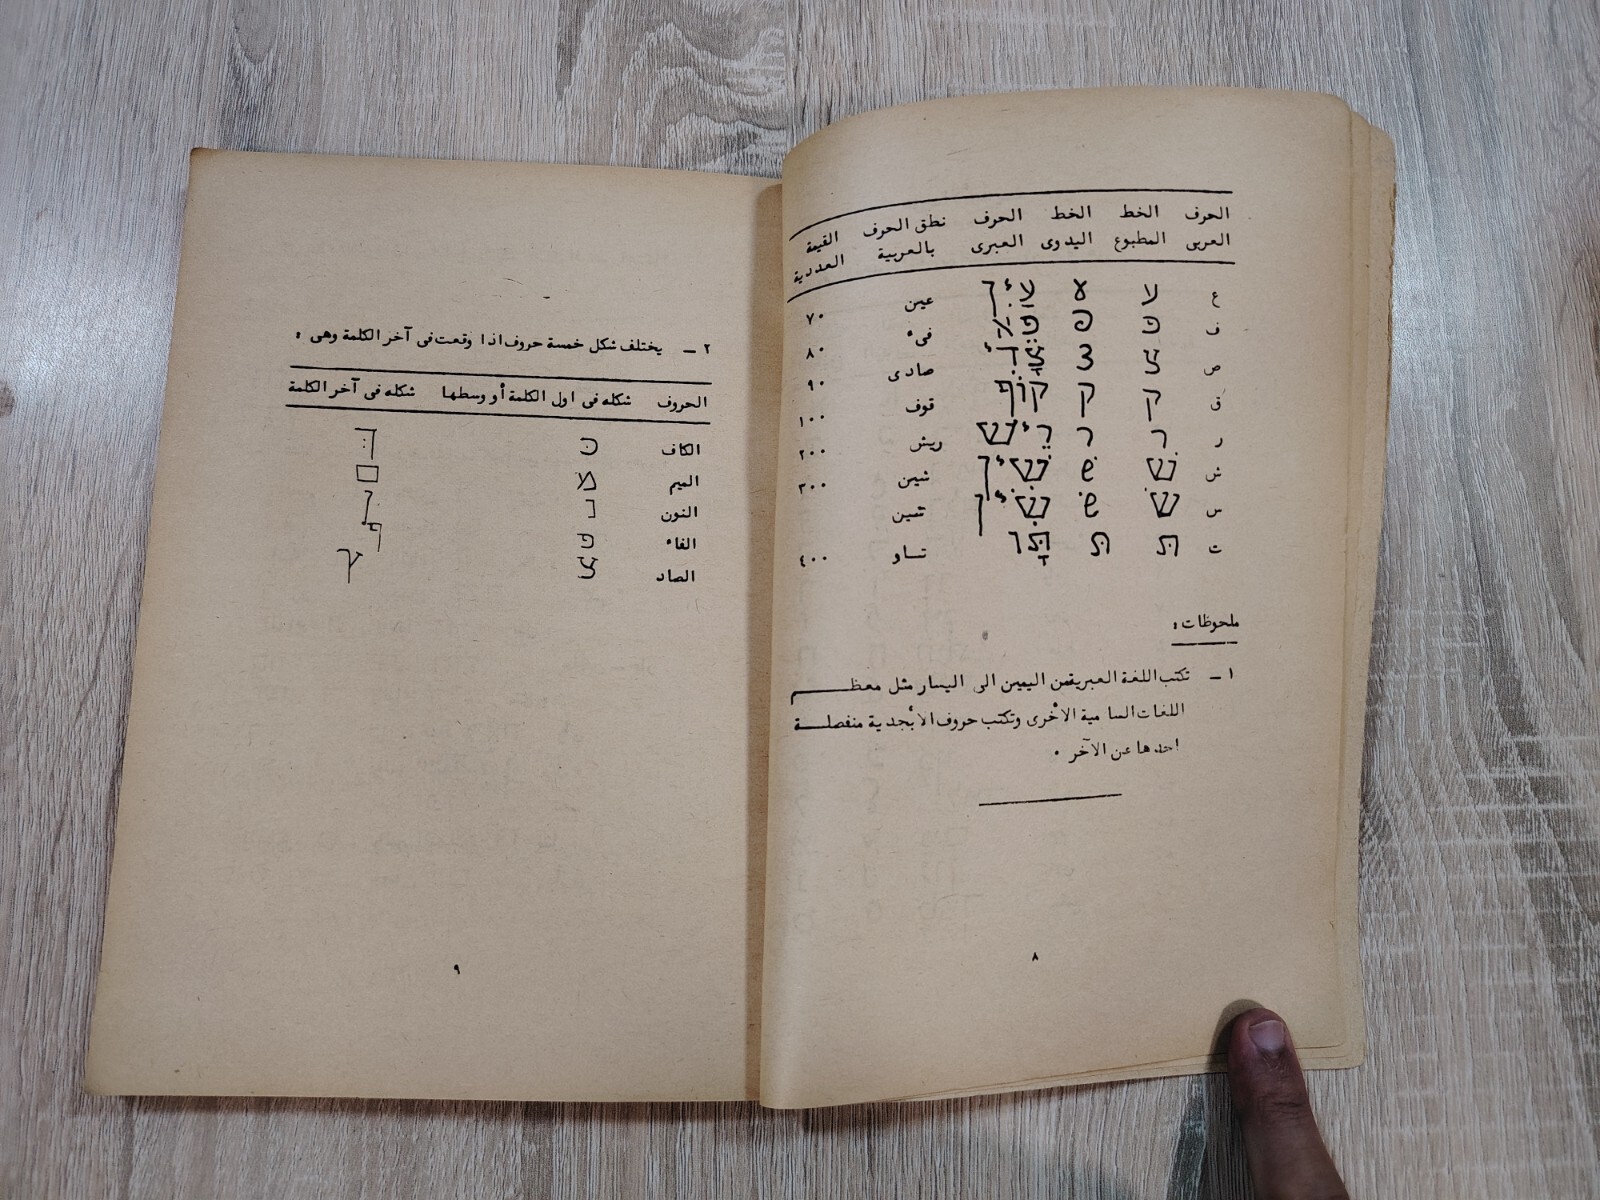 الحرف الخط الخط الحرف نطق الحرف القيمة
العربى المطبوع اليدوى العبرى بالعربية العددية
ع ע ע עַיִן عين ٧٠
ف פ פ פֵּא فىء ٨٠
ص צ צ צָדִי صادى ٩٠
ق ק ק קוֹף قوف ١٠٠
ر ר ר רֵישׁ ريش ٢٠٠
ش שׁ שׁ שִׁין شين ٣٠٠
س שׂ שׂ שִׂין سين
ت תּ תּ תָּו تاو ٤٠٠
ملحوظات :
١ – تكتب اللغة العبرية من اليمين الى اليسار مثل معظم
اللغات السامية الأخرى وتكتب حروف الأبجدية منفصلة
احدها عن الآخر .
٨
٢ – يختلف شكل خمسة حروف اذا وقعت فى آخر الكلمة وهى :
الحروف شكله فى اول الكلمة أو وسطها شكله فى آخر الكلمة
الكاف כ ך
الميم מ ם
النون נ ן
الفاء פ ף
الصاد צ ץ
٩